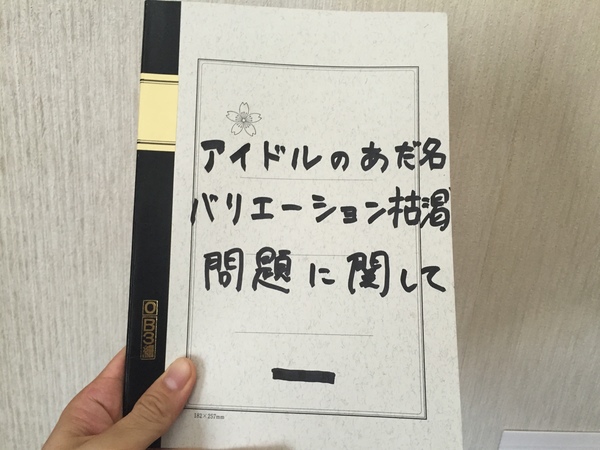 アイドルのあだ名
バリエーション枯渇
問題に関して
182×257mm